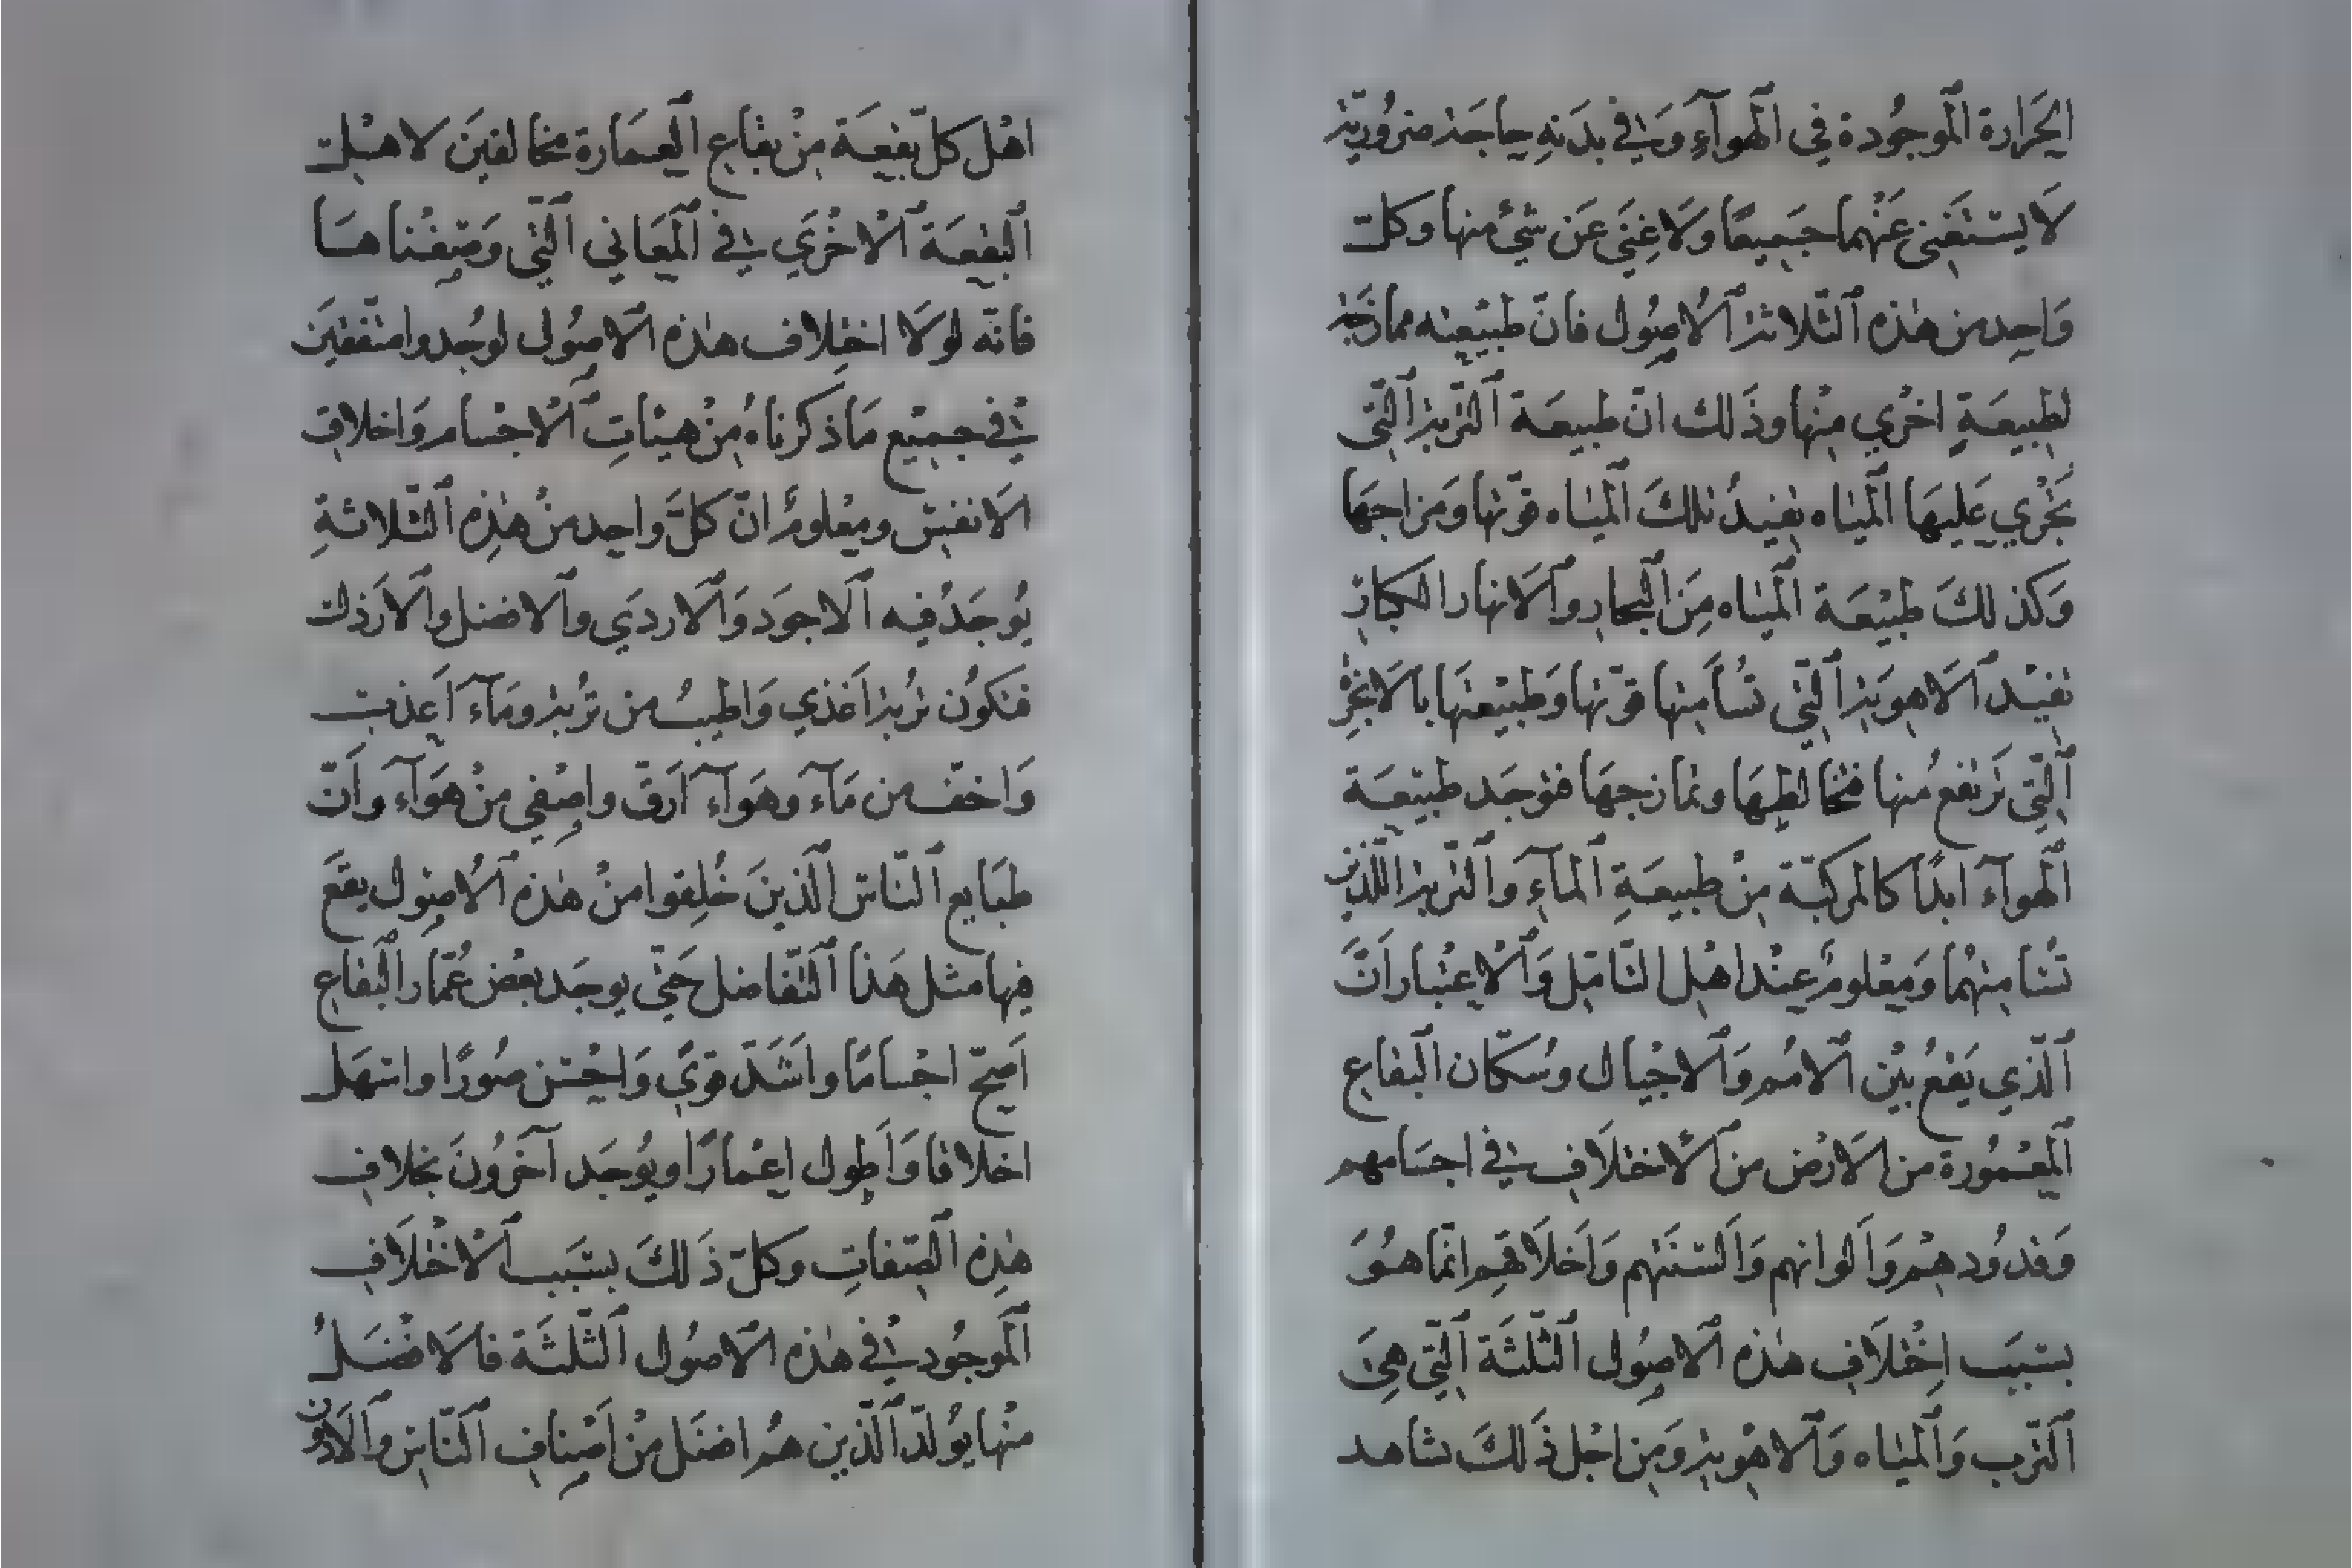 الحَرارة الَموجُودة في الَهوآءِ وَفي بدَنهِ حاجَة ضرُوريّة
لَا يستَغني عَنْهما جَميعًا ولَا غِنَى عَن شيْ منها وكلّ
وَاحِد من هٰذه الثّلاثة الُاصُول فانّ طبيْعته ممازجَة
لطبيعَةٍ اخرْي مِنْها وذَلك انّ طبيعَة التّربة الَتّي
تَجْري عَليهَا الَميٰاه تفيدُ تلكَ الَميٰاه قوّتها وَمزاجهَا
وَكذلكَ طبيْعَة الَميٰاه مِنَ الَبحار والَانهار الكبار
تفيْد الَاهوَية الَتّي تنُشأ مِنها قوّتها وَطبيْعتهَا بالَابخْرِة
الَتّي تَرتفع مُنها فتخالطهَا وتمازجهَا فتوجَد طبيْعَة
الَهوآءَ ابدًا كالمركبّة مِنْ طبيعَةِ الَمآءِ والتّربة اللّذين
تنُشأ مِنهْما وَمعْلومٌ عِنْد اهْل التّامّل وَالْاعِتْبار اَنَّ
الَذّي يَقعُ بيْن الَامُم وَالَاجْيال وسُكّان الَبقاع
الَمعْمُورة من الَارْض من الْاختلَاف في اجسَامهم
وَقدُودهمْ وَاَلوانهم وَاَلسنَتهم وَاَخلَاقهِم انّما هُوَ
بسَبَب اخِتْلَاف هٰذه الَاصُول الثّلثَة الَتّي هِيَ
الَتّرب وَالَميٰاه وَالَاهْوية وَمِن اجْل ذَلكَ نشاهد
اهْل كلّ بقعَة مِنْ بقاع الَعمَارة مخالفينَ لاهْل
الَبقعَة الْاخْرَي في الَمعَاني الَتّي وَصفْناهَا
فانّه لولَا اختِلاف هٰذه الَاصُول لوُجدوا متّفقينَ
في جميْع مَا ذكرناهُ مِنْ هيْئاتِ الَاجْسام وَاخلاق
الَانفس ومعْلومٌ انّ كلَّ واحِد منْ هٰذِه الثّلاثةِ
يُوجَدُ فيه الَاجوَد وَالَاردَي والَافضل والَارَذل
فتكوُن تُربة اَغذي وَاطيبُ من تُربة ومَآءَ اَعذب
وَاخفّ من مَآءَ وهَوآءَ اَرَقّ واصْفي مِنْ هَوَآءَ واَنّ
طبَايع الَنّاس الَذّينَ خُلِقوا منْ هٰذه الُاصُول يقعَ
فيها مثل هَذا الَتّفاضل حَتّي يوجَد بعْض عُمّار الَبقاع
اَصحّ اجْسامًا واَشَدّ قويً وَاحْسَن صُورًا واسْهَل
اخلاقا وَاَطول اعْمارًا ويوُجَد آخَروُنَ بخلاف
هٰذِه الصّفاتِ وكلّ ذَلكَ بسَبَب الْاخْتلَاف
الَموجُود في هٰذه الَاصُول الثّلثَة فالَافضَلُ
منْها يوُلدّ الَذّين همُ افضَل مِنْ اَصْناف الَنّاس والَادْون